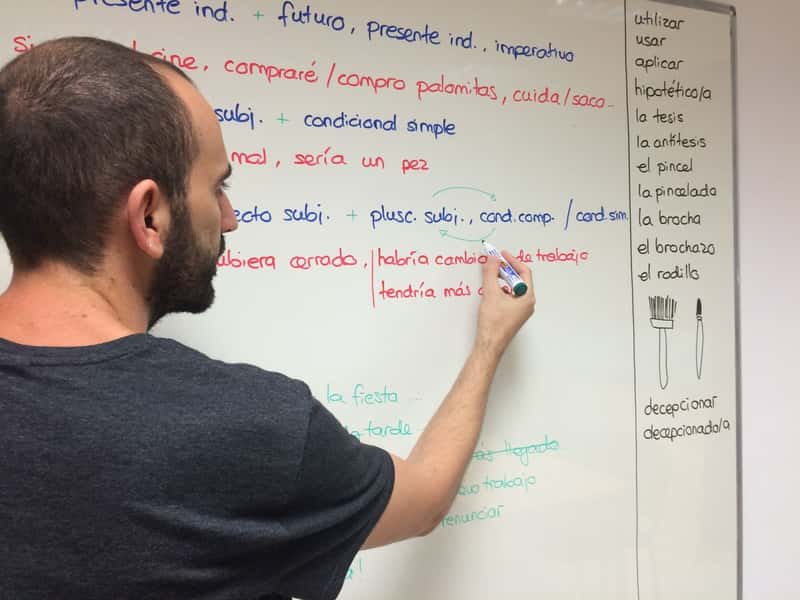 presente ind. + futuro, presente ind., imperativo
compraré / compro palomitas, cuida/saca...
subj. + condicional simple
sería un pez
subj. + plusc. subj., cond. comp. / cond. sim.
cerrado, habría de trabajo
tendría más
la fiesta
tarde
llegado
trabajo
renunciar
utilizar
usar
aplicar
hipotético/a
la tesis
la antítesis
el pincel
la pincelada
la brocha
el brochazo
el rodillo
decepcionar
decepcionado/a